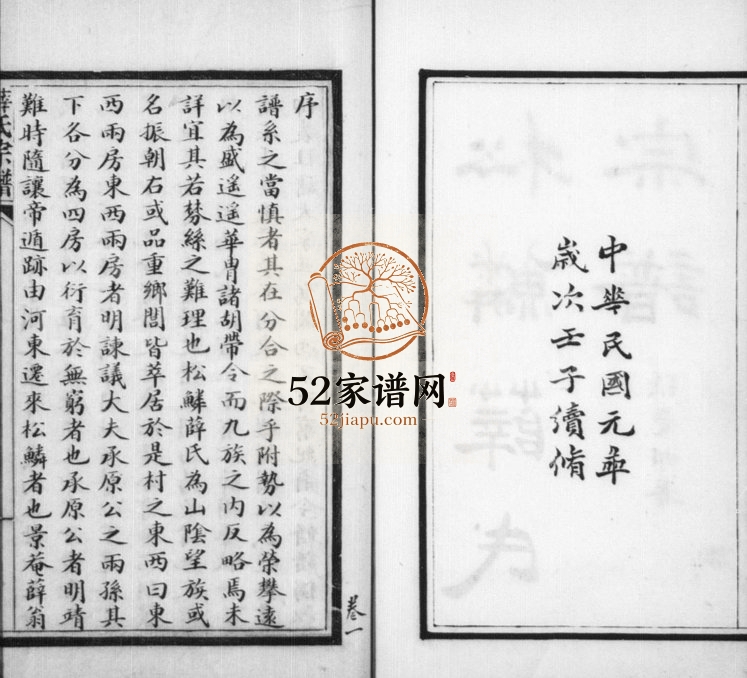 中華民國元年
歲次壬子續脩
卷一
序
譜系之當慎者其在分合之際乎附勢以為榮攀遠
以為盛遥遥華胄諸胡帶令而九族之内反略焉未
詳宜其若棼絲之難理也松鱗薛氏為山陰望族或
名振朝右或品重鄉閭皆萃居於是村之東西曰東
西兩房東西兩房者明諫議大夫承原公之兩孫其
下各分為四房以衍育於無窮者也承原公者明靖
難時隨讓帝遁跡由河東遷來松鱗者也景菴薛翁
薛氏宗譜
52家谱网
52jiapu.com